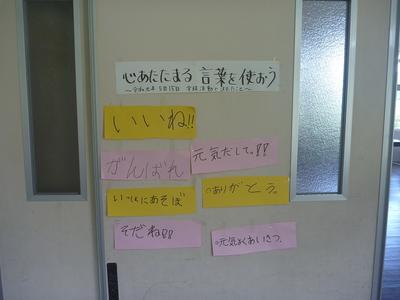 心あたたまる言葉を使おう
～令和元年5月15日 学級活動で
いいね!!
がんばれ
元気だして。!!
いっしょにあそぼ
○ありがとう。
そだね!!
○元気よくあいさつ。